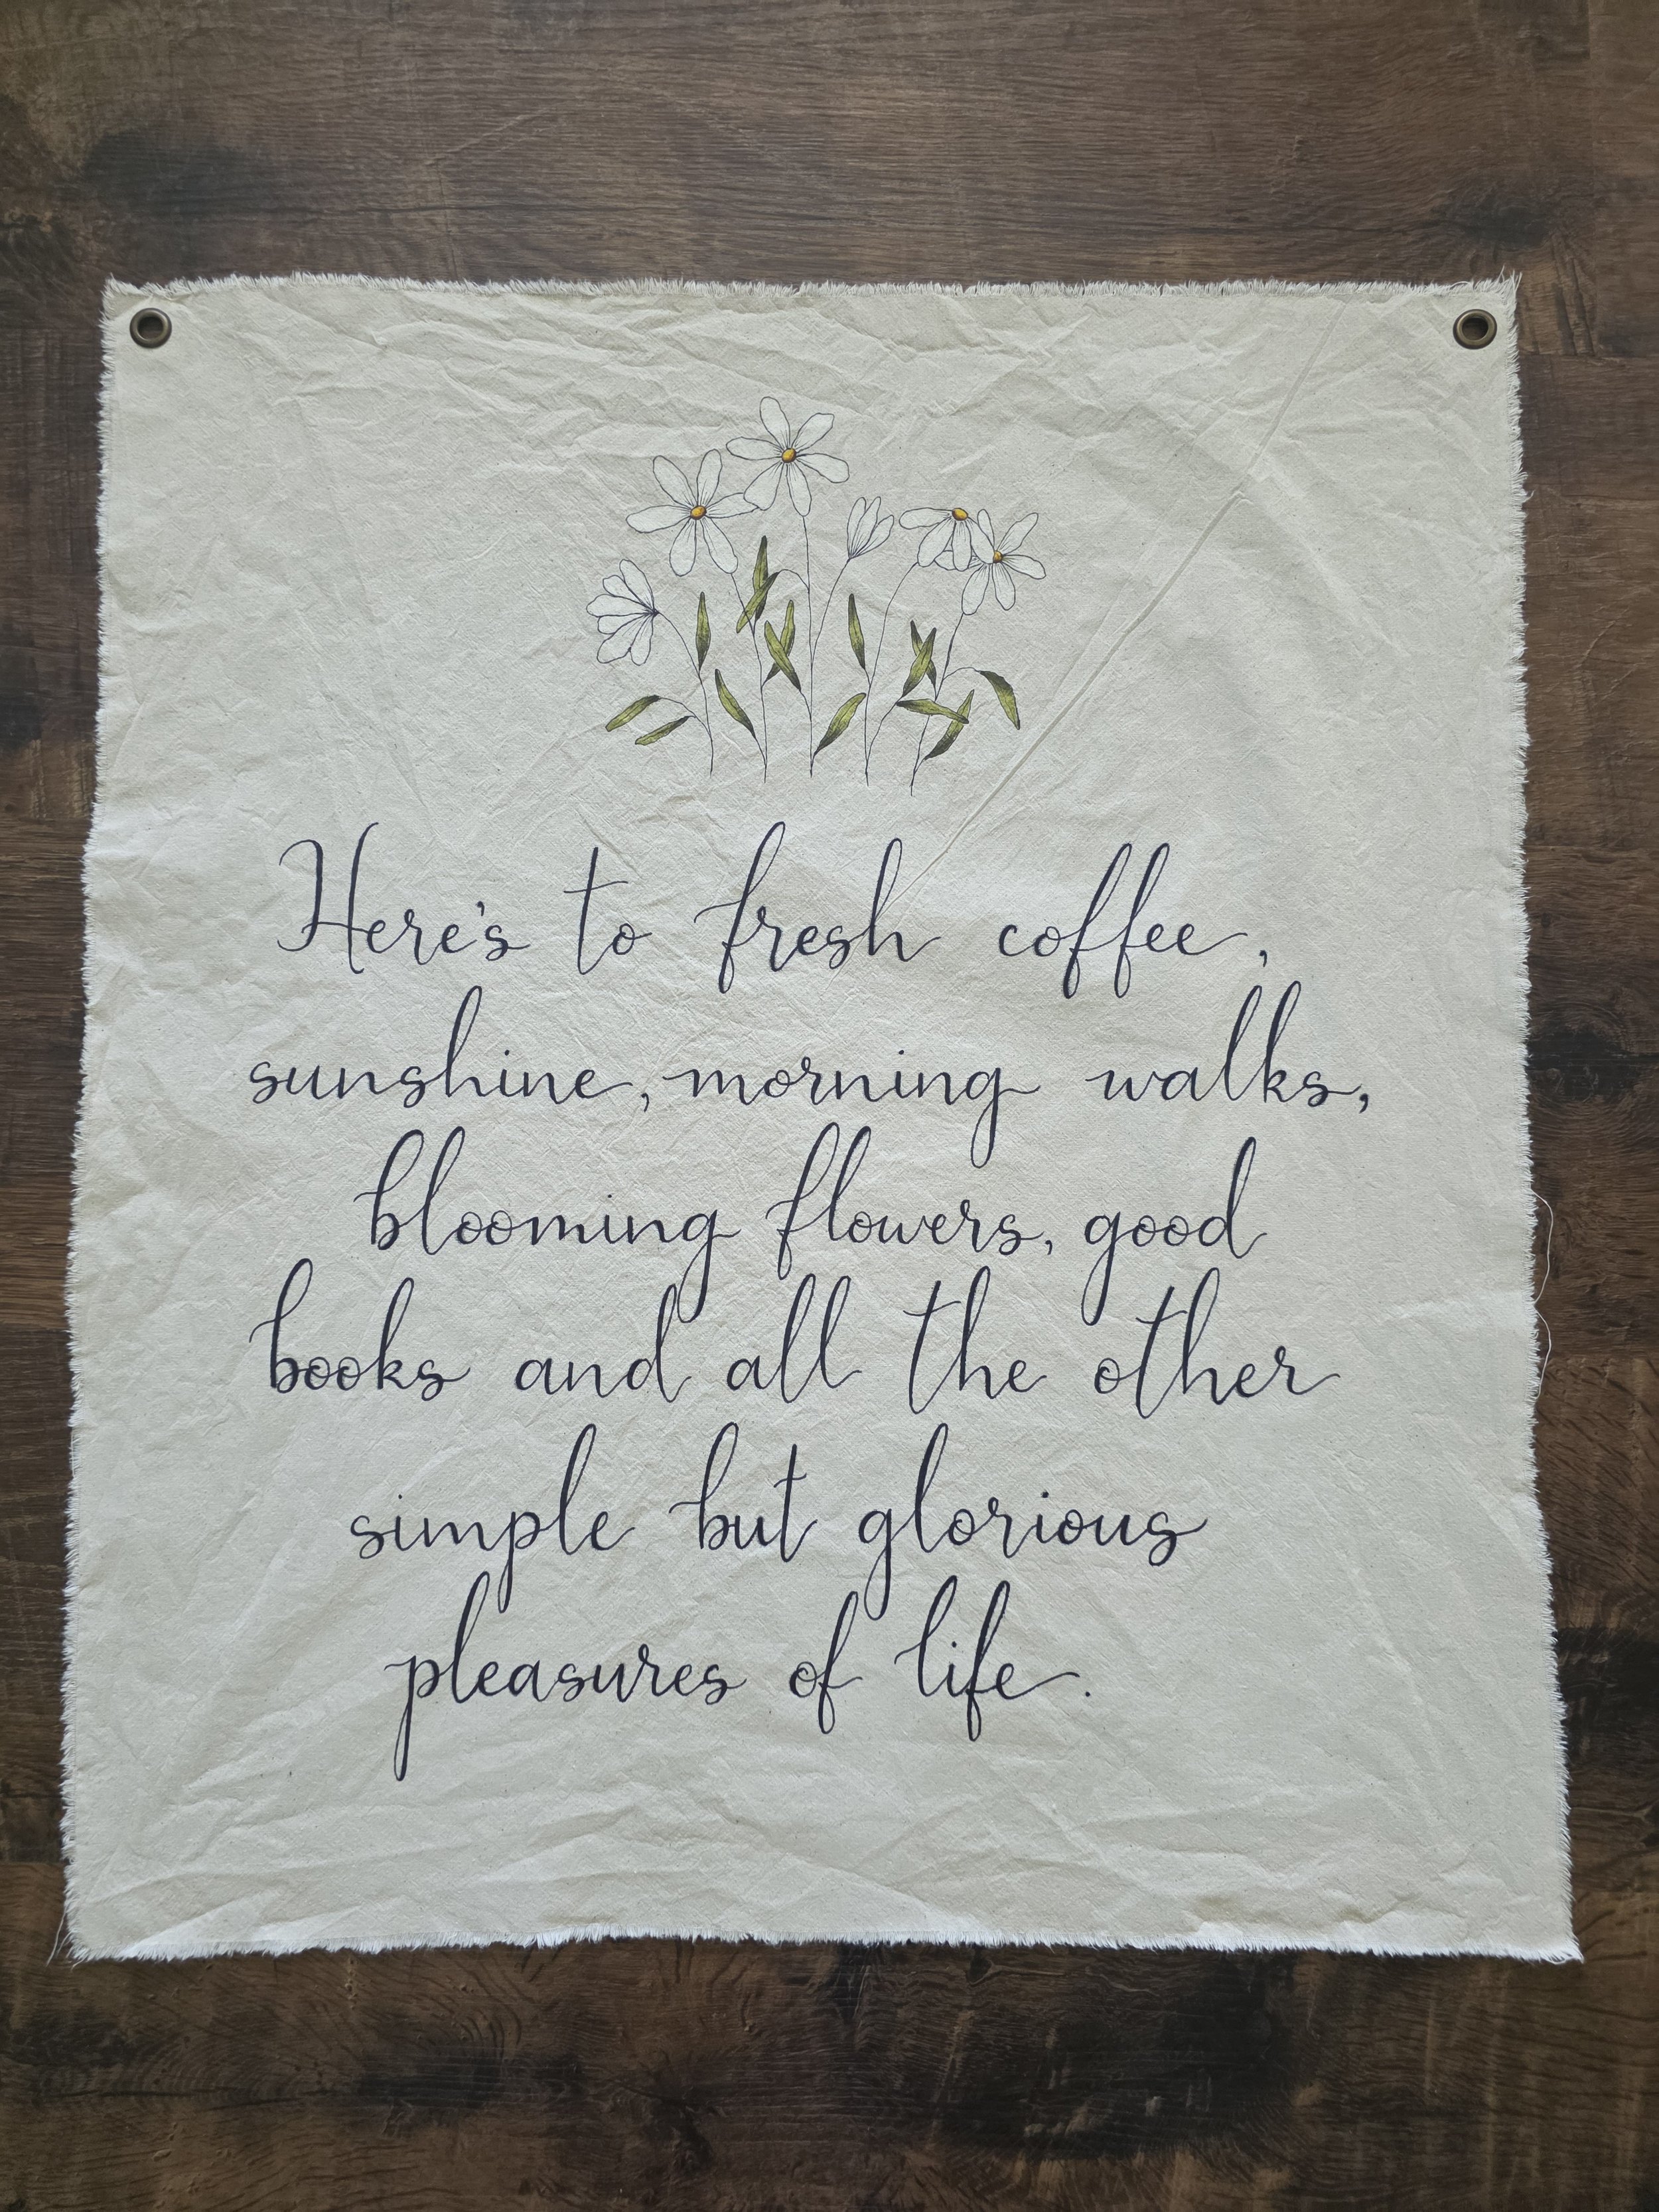 Here's to fresh coffee,
sunshine, morning walks,
blooming flowers, good
books and all the other
simple but glorious
pleasures of life.